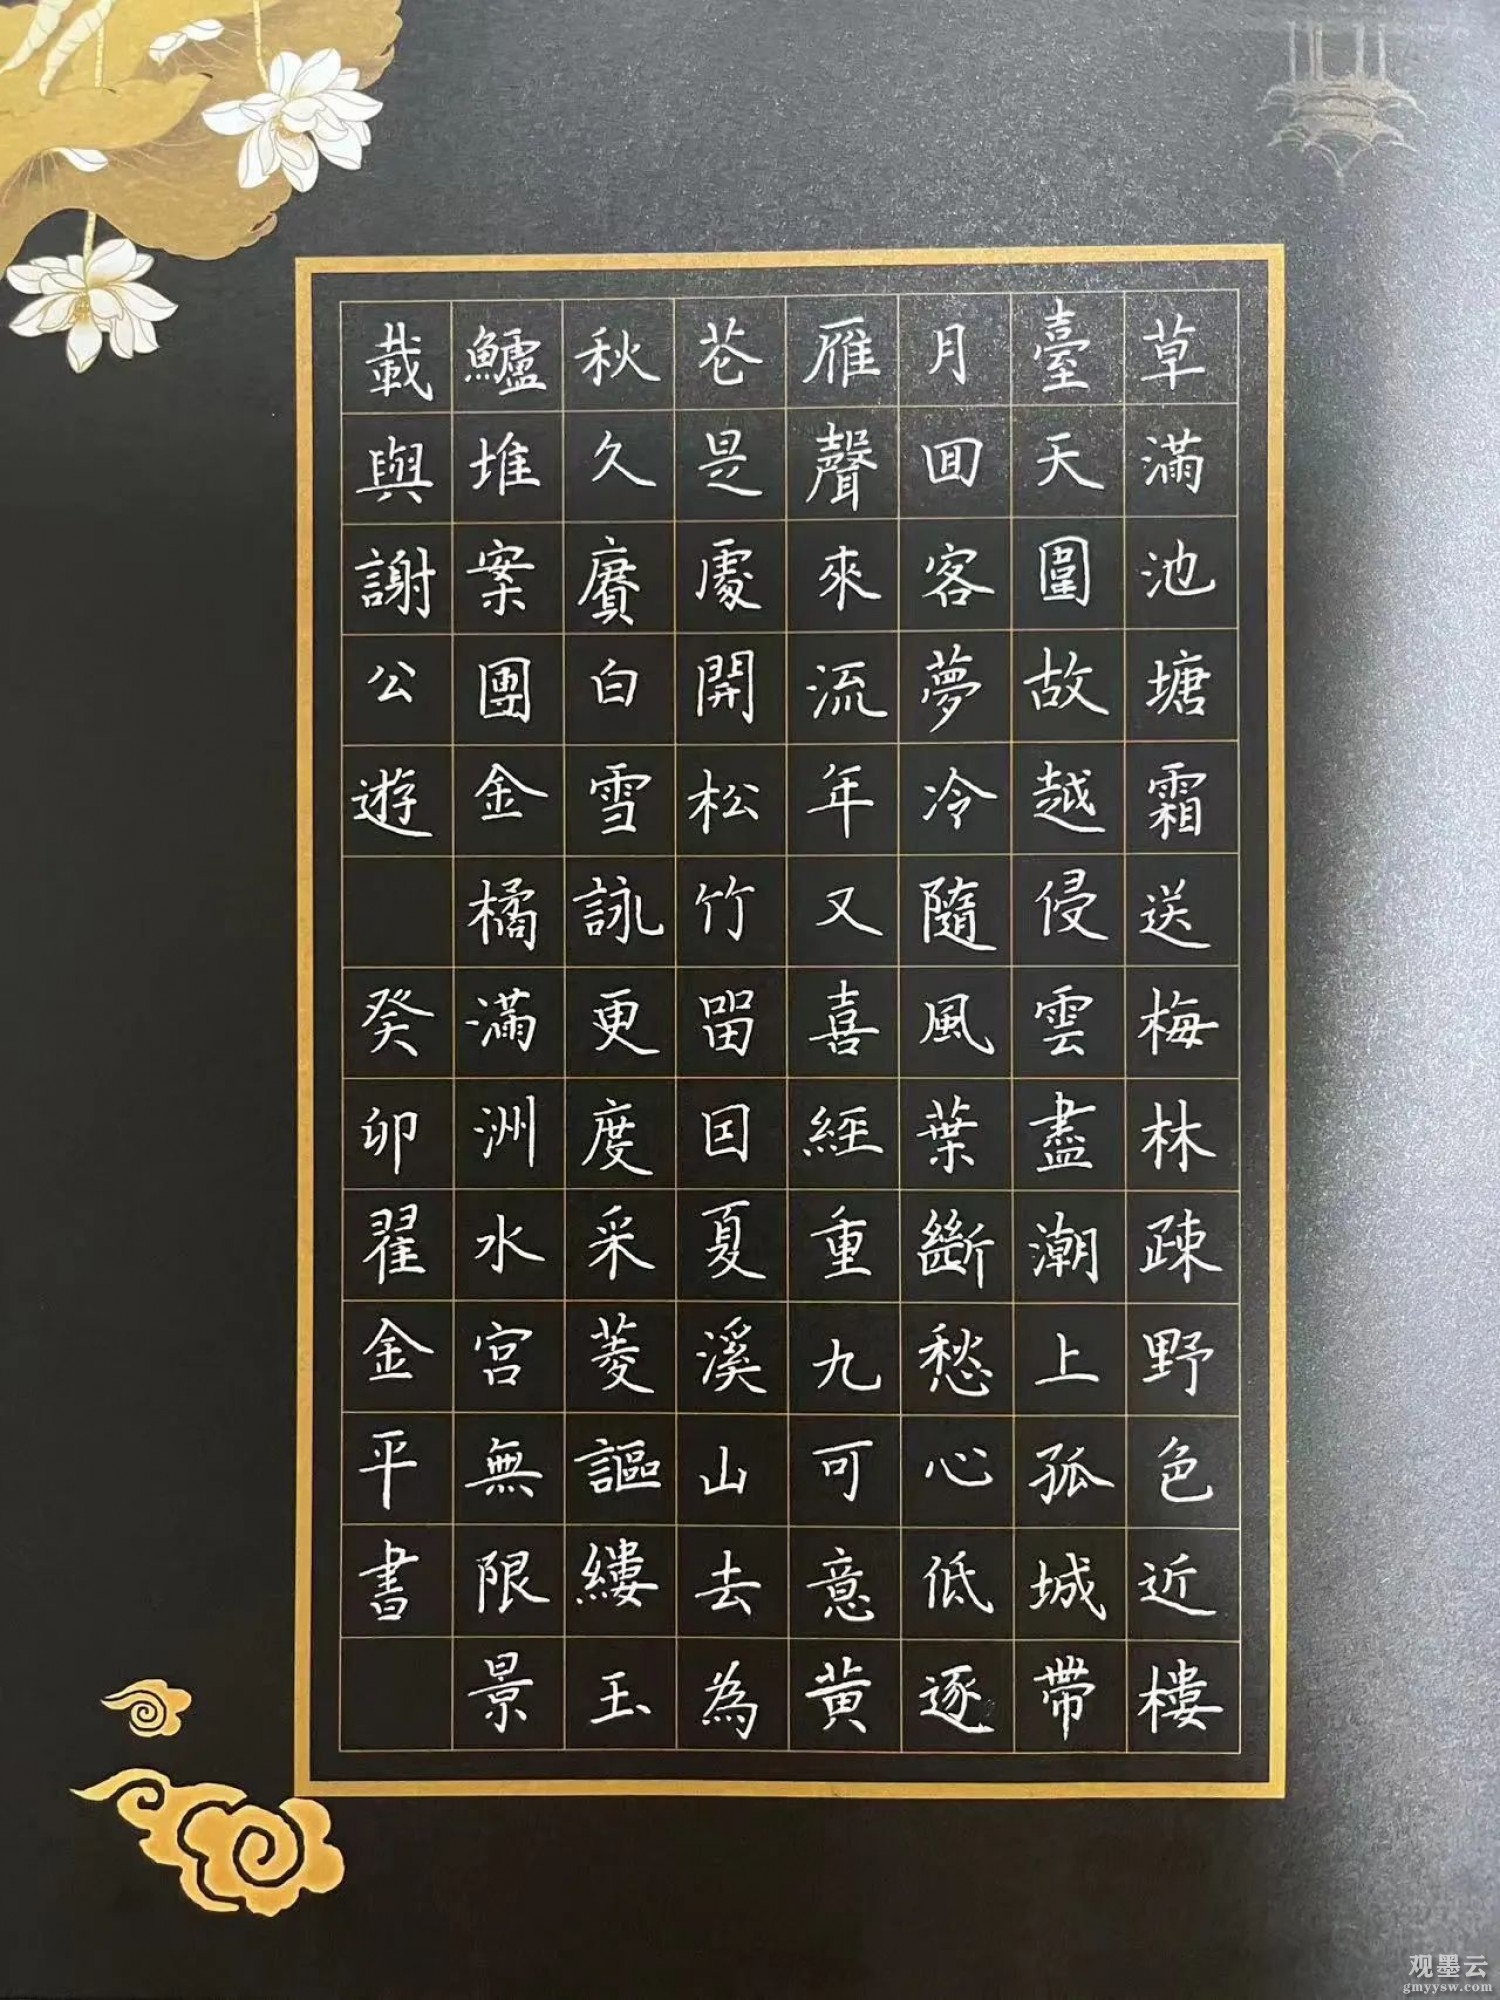 草滿池塘霜送梅林疎野色近樓
臺天圍故越侵雲盡潮上孤城帶
月囬客夢冷隨風葉斷愁心低逐
雁聲來流年又喜經重九可意黄
芲是處開松竹㽞囙夏溪山去為
秋久賡白雪詠更度采菱謳縷玉
鱸堆案團金橘滿洲水宮無限景
載與謝公遊 癸卯翟金平書
观墨云
gmyysw.com